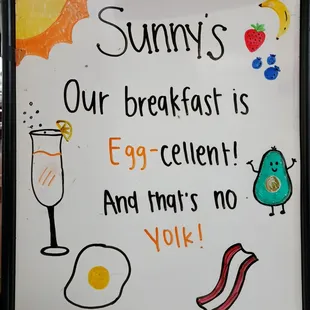 Sunny's
Our breakfast is
Egg-cellent!
And that's no
Yolk!